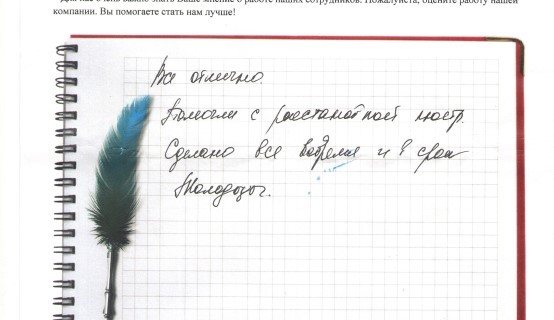 Для нас очень важно знать Ваше мнение о работе наших сотрудников. Пожалуйста, оцените работу нашей
компании. Вы помогаете стать нам лучше!
Все отлично.
Помогли с расстановкой люстр.
Сделано все вовремя и в срок
Молодцы.